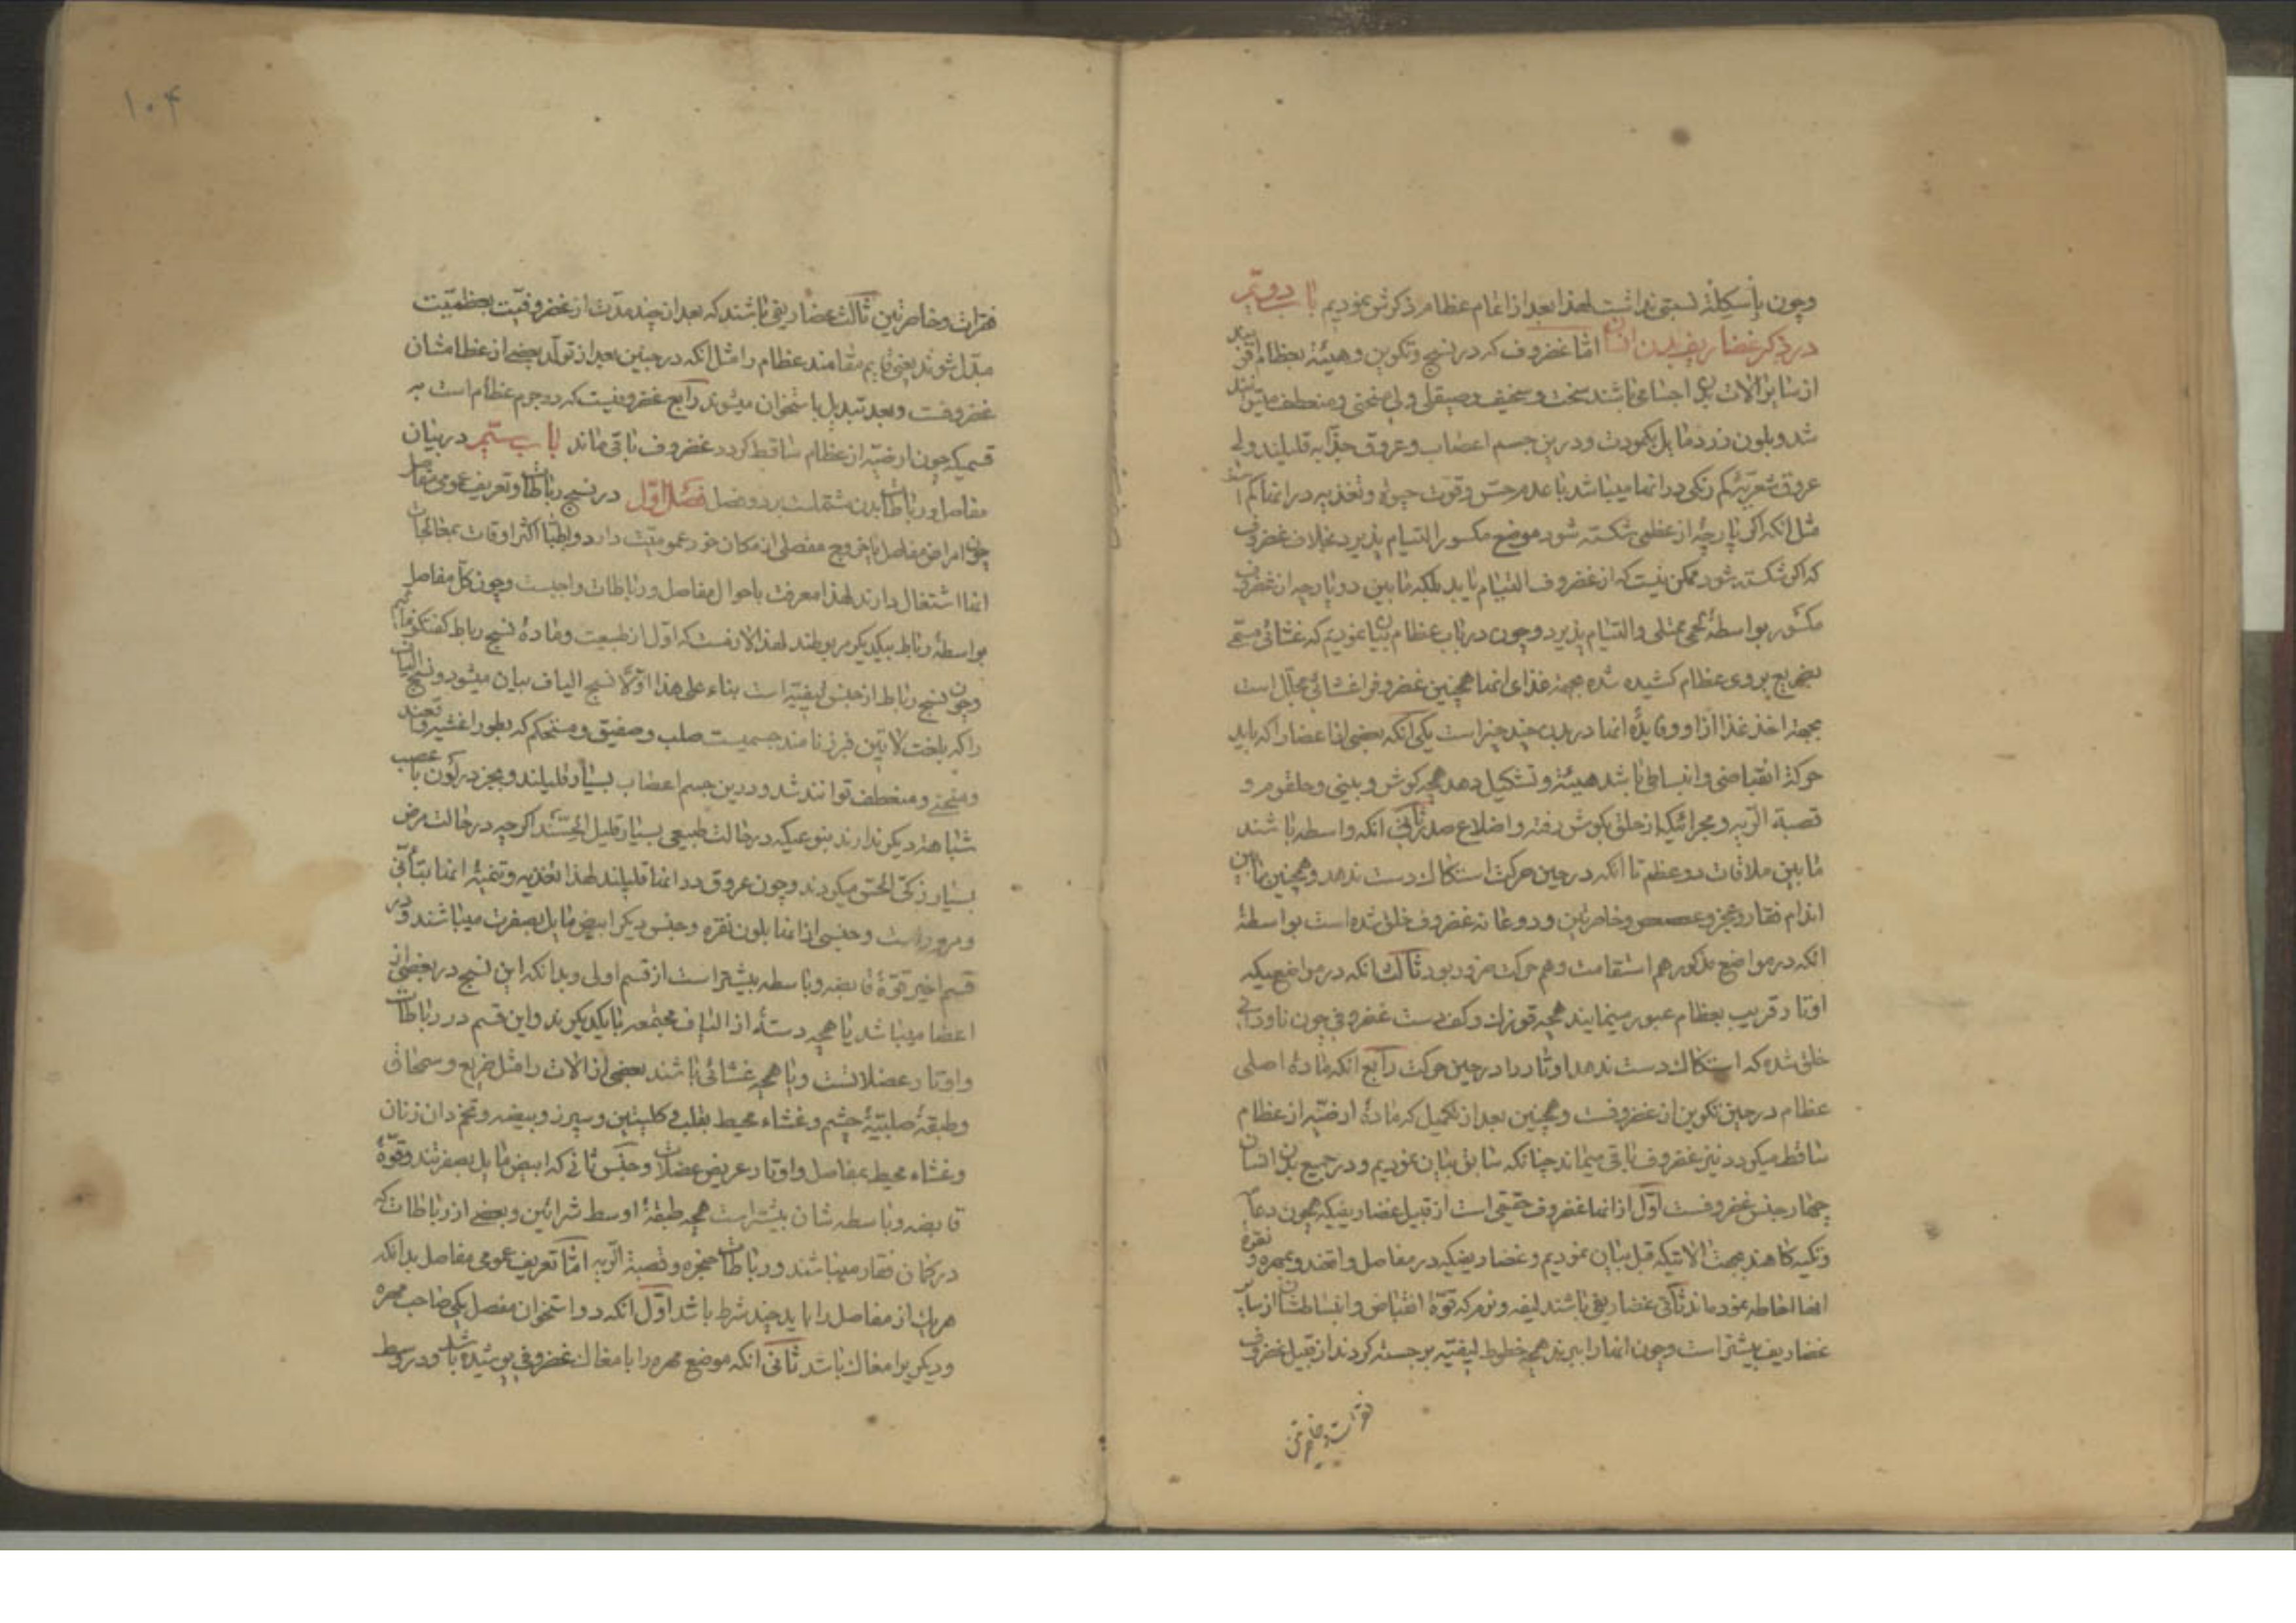 وچون باسکلة نسبتی نداشت لهذا بعد از اتمام عظام ذکرش نمودیم باب دویّم
در ذکر غضاریف بدن انسان امّا غضروف که در نسج وتکوین وهیئة بعظام
از سایر الات بدن اجسامی باشند سخت وسخیف وصیقلی ولی منحنی ومنعطف
شد وبلون زرد مایل بکمودت ودرین جسم اعصاب وعروق جذّابه قلیلند ولی
عروق شعریّه کم رنکی در انها میباشد با عدم حسّ وقوّت حیوة وتغذیه در انها کم
مثل انکه اکر پارچهٔ از عظمی شکسته شود موضع مکسور التیام پذیرد بخلاف غضروف
که اکر شکسته شود ممکن نیست که از غضروف التیام یابد بلکه مابین دو پارچه از غضروف
مکسور بواسطهٔ لحمی ممتلی والتیام پذیرد وچون در باب عظام بیان نمودیم که غشائی مسمّی
بضریع بروی عظام کشیده شده بجهة غذای انها همچنین غضروف را غشائی مجلّل است
بجهة اخذ غذا از او وفایدهٔ انها در بدن چند چیز است یکی انکه بعضی از اعضا را که باید
حرکة انقباضی وانبساطی باشد هیئة وتشکیل دهد همچه کوش وبینی وحلقوم و
قصبة الرّیه ومجرائیکه از حلق بکوش رفته واضلاع صدر ثانی انکه واسطه باشند
مابین ملاقات دو عظم تا انکه در حین حرکت استکاک دست ندهد وهمچنین مابین
اندام فقار وعجز وعصعص وخاصرتین ودو عانه غضروف خلق شده است بواسطهٔ
انکه در مواضع مذکور هم استقامت وهم حرکت ضرور بود ثالث انکه در مواضعیکه
اوتار قریب بعظام عبور مینمایند همچه قوزک وکف دست غضروفی چون ناودانی
خلق شده که استکاک دست ندهد اوتار را در حین حرکت رابع انکه مادهٔ اصلی
عظام در حین تکوین از غضروفست وهمچنین بعد از تکمیل که مادهٔ ارضیّه از عظام
ساقط میکردد نیز غضروف باقی میماند چنانکه سابق بیان نمودیم ودر جمیع بدن انسان
چهار جنس غضروفست اوّل از انها غضروف حقیقی است از قبیل غضاریفیکه همچون دعا
وتکیه کاهند بجهت الاتیکه قبل بیان نمودیم وغضاریفیکه در مفاصل واقعند وبمهره و نقرهٔ
انها احاطه نموده اند ثانی غضاریفی باشند لیفه ونرم که قوّة انقباض وانبساطشان از سایر
غضاریف بیشتر است وچون انها را ببرند همچه خطوط لیفیّه برجسته کردند از قبیل غضروف
فقرات وخاصرتین
۱۰۴
فقرات وخاصرتین ثالث غضاریفی باشند که بعد از چند مدّت از غضروفیّت بعظمیّت
مبدّل شوند یعنی قایم مقامند عظام را مثل انکه در جنین بعد از تولّد بعضی از عظامشان
غضروفست وبعد تبدیل باستخوان میشوند رابع غضروفیست که در جرم عظام است به
قسمیکه چون ارضیّه از عظام ساقط کردد غضروف باقی ماند باب سیّم در بیان
مفاصل ورباطات بدن مشتملست بر دو فصل فصل اوّل در نسج رباطات وتعریف عمومی مفاصل
چون امراض مفاصل یا خروج مفصلی از مکان خود عمومیّت دارد واطبّا اکثر اوقات بمعالجات
انها اشتغال دارند لهذا معرفت باحوال مفاصل ورباطات واجبست وچون کلّ مفاصل
بواسطهٔ رباط بیکدیکر مربوطند لهذا لازمست که اوّل از طبیعت ومادهٔ نسج رباط کفتکو نمائیم
وچون نسج رباط از جنس لیفیّه است بناء علی هذا اوّلاً نسج الیاف بیان میشود ونسج الیاف
را که بلغت لاتین فبرز نامند جسمیست صلب وصفیق ومستحکم که بطور اغشیه واقعند
ومنحنی ومنعطف توانند شد ودرین جسم اعصاب بسیار قلیلند وبجز در لون با عصب
شباهة دیکر ندارند بنوعیکه در حالت طبیعی بسیار قلیل الحسّند اکرچه در حالت مرض
بسیار زکیّ الحسّ میکردند وچون عروق در انها قلیلند لهذا تغذیه وتنمیهٔ انها بتأنّی
ومرور است وجنسی از انها بلون نقره وجنس دیکر ابیض مایل بصفرت میباشند ودر
قسم اخیر قوّهٔ قابضه وباسطه بیشتر است از قسم اولی وبدانکه این نسج در بعضی از
اعضا میباشد یا همچه دستهٔ از الیاف مجتمعه با یکدیکرند واین قسم در رباطات
واوتار عضلاتست ویا همچه غشائی باشند بعضی از الات را مثل ضریع وسمحاق
وطبقهٔ صلبیّهٔ چشم وغشاء محیط بقلب وکلیتین وسپرز وبیضه وتخم دان زنان
وغشاء محیط بمفاصل واوتار عریض عضلات وجنس ثانی که ابیض مایل بصفرتند وقوّهٔ
قابضه وباسطه شان بیشتر است همچه طبقهٔ اوسط شرائین وبعضی از رباطات که
در کمان فقار میباشند ورباطات حنجره وقصبة الرّیه امّا تعریف عمومی مفاصل بدانکه
هریک از مفاصل را باید چند شرط باشد اوّل انکه دو استخوان مفصل یکی صاحب مهره
ودیکری را مغاک باشد ثانی انکه موضع مهره را با مغاک غضروفی پوشیده باشد ودر وسط